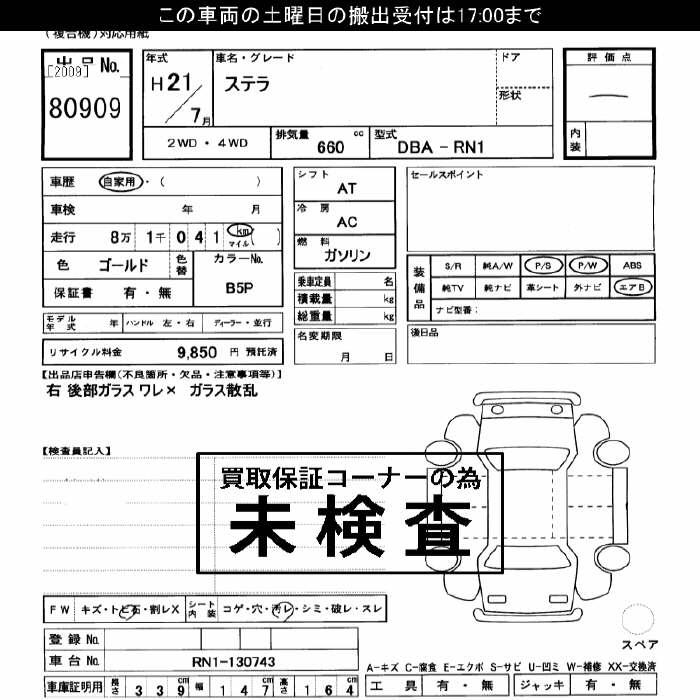 この車両の土曜日の搬出受付は17:00まで
(複合機)対応用紙
出品 No.
[2009]
80909
年式
H 21 / 7月
車名・グレード
ステラ
ドア
形状
評価点
内装
2WD・4WD
排気量 660 cc
型式 DBA - RN1
車歴 自家用・( )
車検 年 月
走行 8万 1千 0 4 1 km マイル ( )
色 ゴールド
色替
カラーNo.
B5P
保証書 有・無
シフト
AT
冷房
AC
燃料
ガソリン
セールスポイント
装備品
S/R 純A/W P/S P/W ABS
純TV 純ナビ 革シート 外ナビ エアB
ナビ型番:
乗車定員 名
積載量 kg
総重量 kg
モデル年式 年 ハンドル 左・右 ディーラー・並行
後日品
名変期限
月 日
リサイクル料金 9,850 円 預託済
【出品店申告欄(不良箇所・欠品・注意事項等)】
右 後部ガラス ワレ× ガラス散乱
【検査員記入】
買取保証コーナーの為
未検査
FW キズ・トビ石・割レX
シート内装 コゲ・穴・汚レ・シミ・破レ・スレ
登録 No.
車台 No. RN1-130743
スペア
A-キズ C-腐食 E-エクボ S-サビ U-凹ミ W-補修 XX-交換済
車庫証明用 長さ 3 3 9 cm 幅 1 4 7 cm 高さ 1 6 4 cm
工具 有・無 ジャッキ 有・無